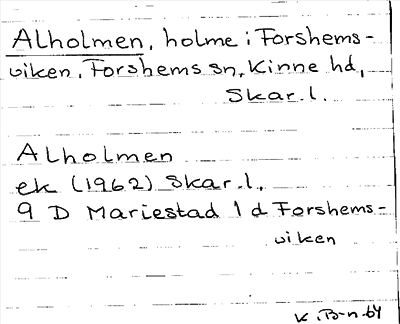 Alholmen, holme i Forshems-
viken, Forshems sn, Kinne hd,
Skar. l.
Alholmen
ek (1962) Skar. l.
9 D Mariestad 1 d Forshems-
viken
K. B-n. 64